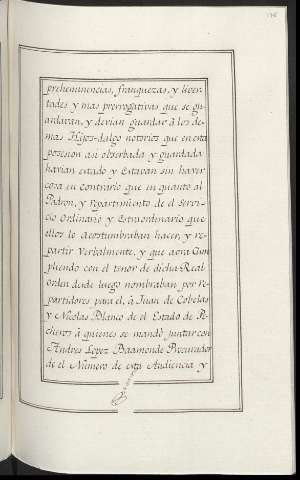 preheminencias, franquezas, y liver-
tades y mas prerrogativas que se gu-
ardavan, y devian guardar à los de-
mas Hijos-dalgo notorios que en esta
posesion asi obserbada y guardada
havian estado y estavan sin haver
cosa en contrario que en quanto al
Padron, y repartimiento de el Servi-
cio Ordinario y Extraordinario que
ellos lo acostumbraban hacer, y re-
partir Verbalmente, y que aora Cum-
pliendo con el tenor de dicha Real
orden desde luego nombraban por re-
partidores para el, à Juan de Cobelas
y Nicolas Blanco de el Estado de Pe-
cheros à quienes se mandò juntar con
Andres Lopez Baamonde Procurador
de el Número de esta Audiencia y